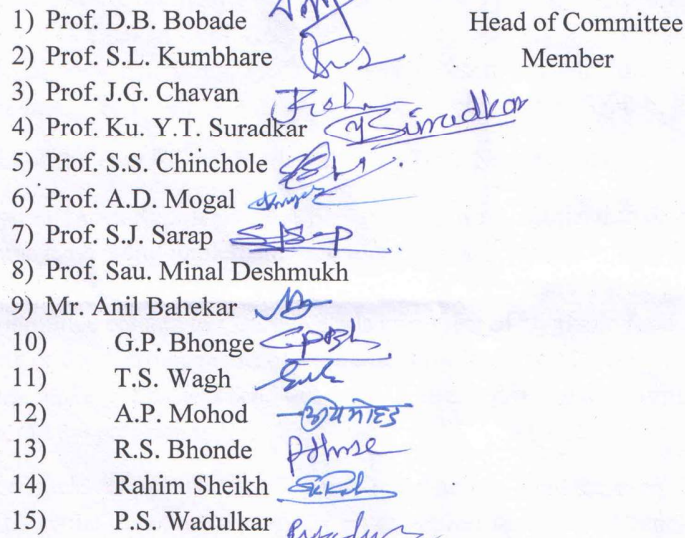 1) Prof. D.B. Bobade Head of Committee
2) Prof. S.L. Kumbhare Member
3) Prof. J.G. Chavan
4) Prof. Ku. Y.T. Suradkar Suradkar
5) Prof. S.S. Chinchole
6) Prof. A.D. Mogal
7) Prof. S.J. Sarap
8) Prof. Sau. Minal Deshmukh
9) Mr. Anil Bahekar
10) G.P. Bhonge
11) T.S. Wagh
12) A.P. Mohod
13) R.S. Bhonde
14) Rahim Sheikh
15) P.S. Wadulkar